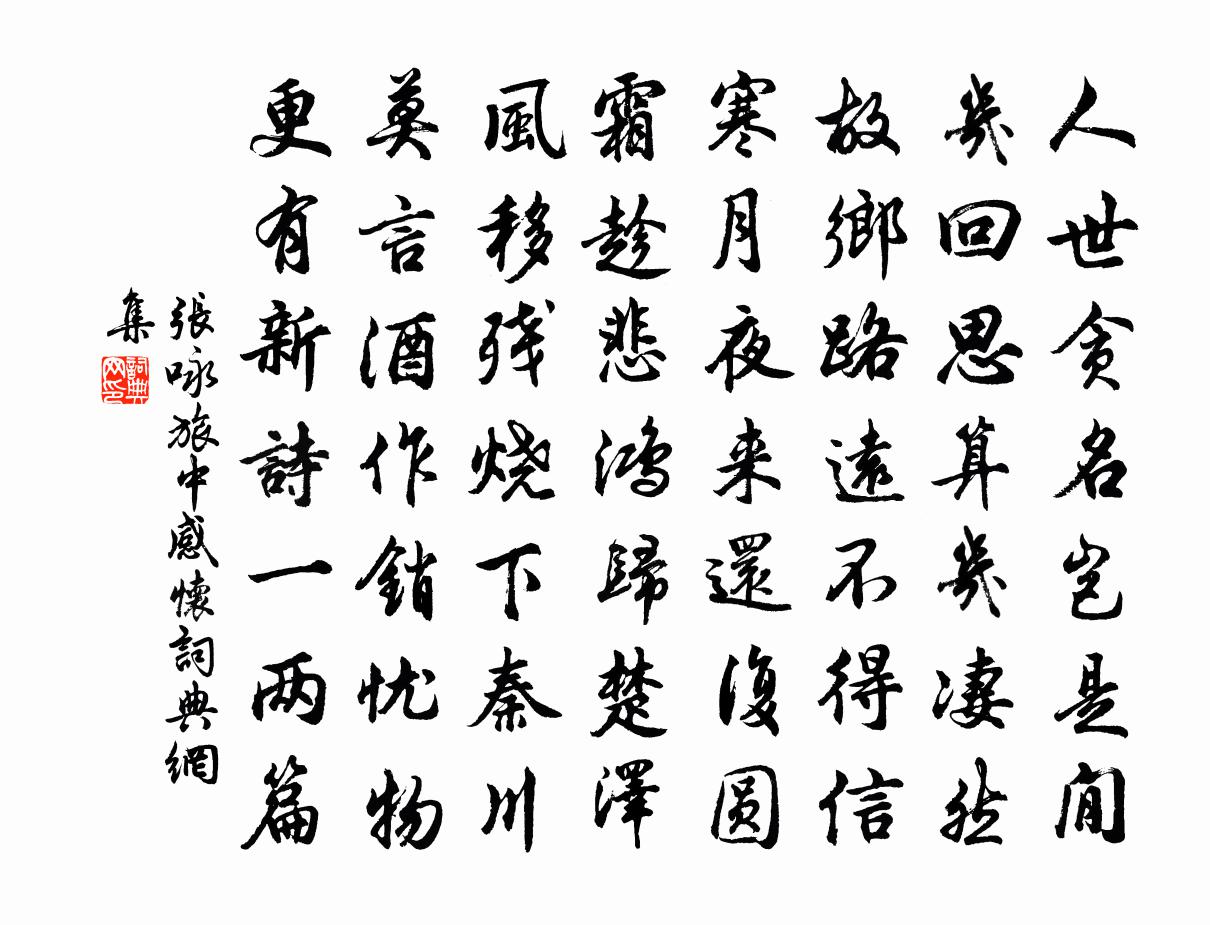 人世贪名岂是闲
幾回思算幾凄然
故鄉路遠不得信
寒月夜来還復圆
霜趁悲鸿歸楚澤
風移残烧下秦川
莫言酒作銷忧物
更有新詩一两篇
張咏旅中感懷詞典網
集
詞典网印